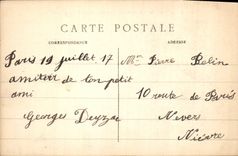 CARTE POSTALE
CORRESPONDANCE
ADRESSE
Paris 19 juillet 17
amitié de ton petit
ami
Georges Deyzac
Mme Pierre Belin
10 route de Paris
Nevers
Nièvre